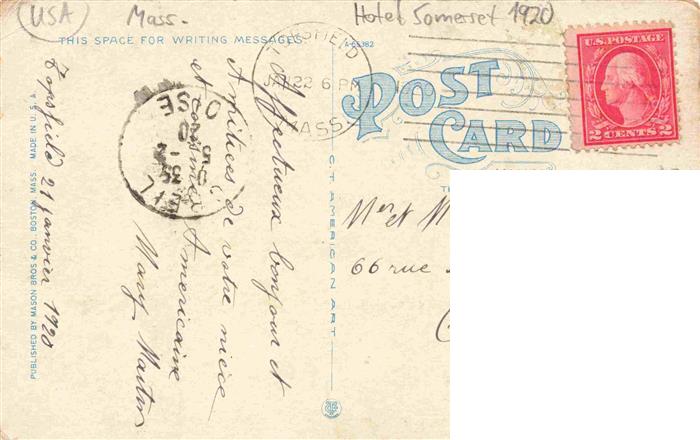 (USA) Mass.
Hotel Somerset 1920
THIS SPACE FOR WRITING MESSAGES.
A-65382
POST
CARD
U.S. POSTAGE
2 CENTS 2
22 6 PM
MASS.
Affectueux bonjour et
Amitiées de votre nièce
et
Americaine
Mary Martin
Topsfield 21 janvier 1920
PUBLISHED BY MASON BROS & CO. BOSTON, MASS. MADE IN U.S.A.
C.T. AMERICAN ART
Mr et M
66 rue